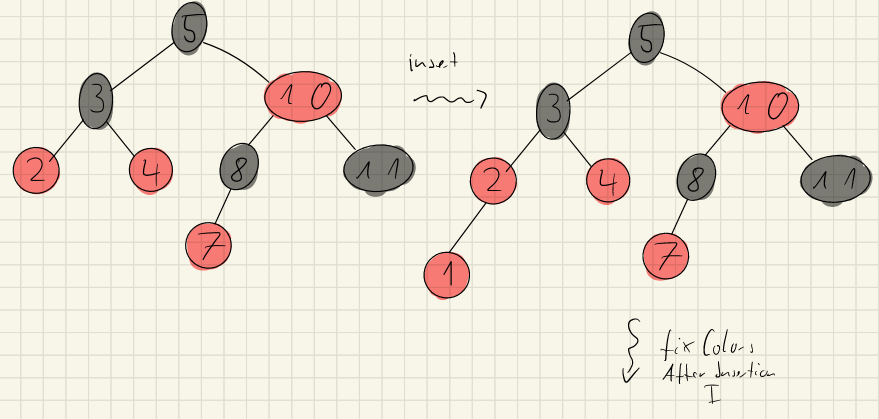 5
3
10
2
4
8
11
7
inset
5
3
10
2
4
8
11
7
1
fix Colors
After Insertion
I